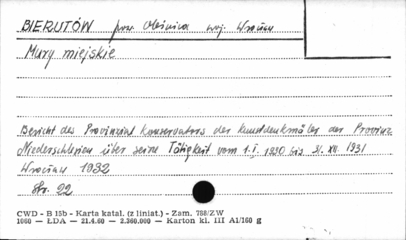 BIERUTÓW pow. Oleśnica woj. Wrocław
Mury miejskie
Bericht des Provinzial Konservators der Kunstdenkmäler der Provinz
Niederschlesien über seine Tätigkeit vom 1.I. 1930 bis 31. XII. 1931
Wrocław 1932
Str. 22
CWD - B 15b - Karta katal. (z liniat.) - Zam. 788/ZW
1060 — LDA — 21.4.60 — 2.360.000 — Karton kl. III A1/160 g